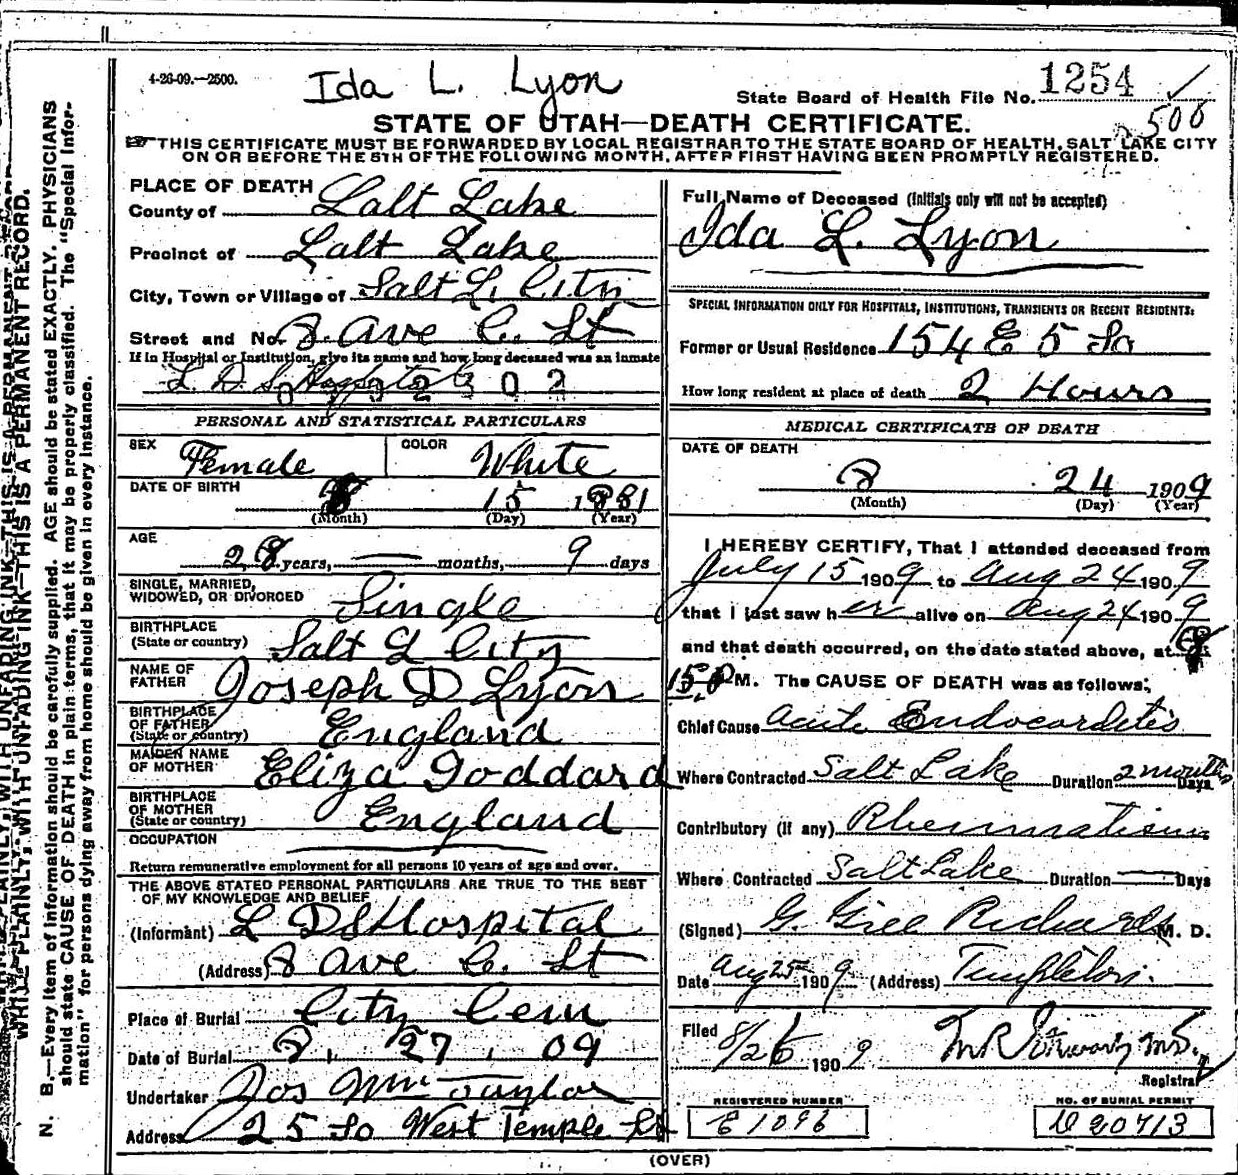 4-26-09.—2500.
Ida L. Lyon
State Board of Health File No. 1254
500
STATE OF UTAH—DEATH CERTIFICATE.
THIS CERTIFICATE MUST BE FORWARDED BY LOCAL REGISTRAR TO THE STATE BOARD OF HEALTH, SALT LAKE CITY
ON OR BEFORE THE 5TH OF THE FOLLOWING MONTH, AFTER FIRST HAVING BEEN PROMPTLY REGISTERED.
PLACE OF DEATH
County of Salt Lake
Precinct of Salt Lake
City, Town or Village of Salt L. City
Street and No. 8 Ave C. St
If in Hospital or Institution, give its name and how long deceased was an inmate
L. D. S. Hospital
PERSONAL AND STATISTICAL PARTICULARS
SEX Female COLOR White
DATE OF BIRTH 8 15 1881
(Month) (Day) (Year)
AGE
28 years, — months, 9 days
SINGLE, MARRIED,
WIDOWED, OR DIVORCED Single
BIRTHPLACE
(State or country) Salt L City
NAME OF
FATHER Joseph D Lyon
BIRTHPLACE
OF FATHER
(State or country) England
MAIDEN NAME
OF MOTHER Eliza Goddard
BIRTHPLACE
OF MOTHER
(State or country) England
OCCUPATION
Return remunerative employment for all persons 10 years of age and over.
THE ABOVE STATED PERSONAL PARTICULARS ARE TRUE TO THE BEST
OF MY KNOWLEDGE AND BELIEF
(Informant) L D S Hospital
(Address) 8 Ave C. St
Place of Burial City Cem
Date of Burial 8, 27, 09
Undertaker Jos Wm Taylor
Address 25 So West Temple St
Full Name of Deceased (Initials only will not be accepted)
Ida L. Lyon
SPECIAL INFORMATION ONLY FOR HOSPITALS, INSTITUTIONS, TRANSIENTS OR RECENT RESIDENTS:
Former or Usual Residence 154 E 5 So
How long resident at place of death 2 Hours
MEDICAL CERTIFICATE OF DEATH
DATE OF DEATH
8 24 1909
(Month) (Day) (Year)
I HEREBY CERTIFY, That I attended deceased from
July 15 1909 to Aug 24 1909
that I last saw her alive on Aug 24 1909
and that death occurred, on the date stated above, at
M. The CAUSE OF DEATH was as follows:
Chief Cause Acute Endocarditis
Where Contracted Salt Lake Duration 2 months Days
Contributory (if any) Rheumatism
Where Contracted Salt Lake Duration — Days
(Signed) G. Gill Richards M. D.
Date Aug 25 1909 (Address) Templeton.
Filed 8/26 1909
Registrar
REGISTERED NUMBER
E1096
NO. OF BURIAL PERMIT
D20713
(OVER)
WRITE PLAINLY, WITH UNFADING INK—THIS IS A PERMANENT RECORD.
N. B.—Every item of information should be carefully supplied. AGE should be stated EXACTLY. PHYSICIANS
should state CAUSE OF DEATH in plain terms, that it may be properly classified. The "Special Infor-
mation" for persons dying away from home should be given in every instance.